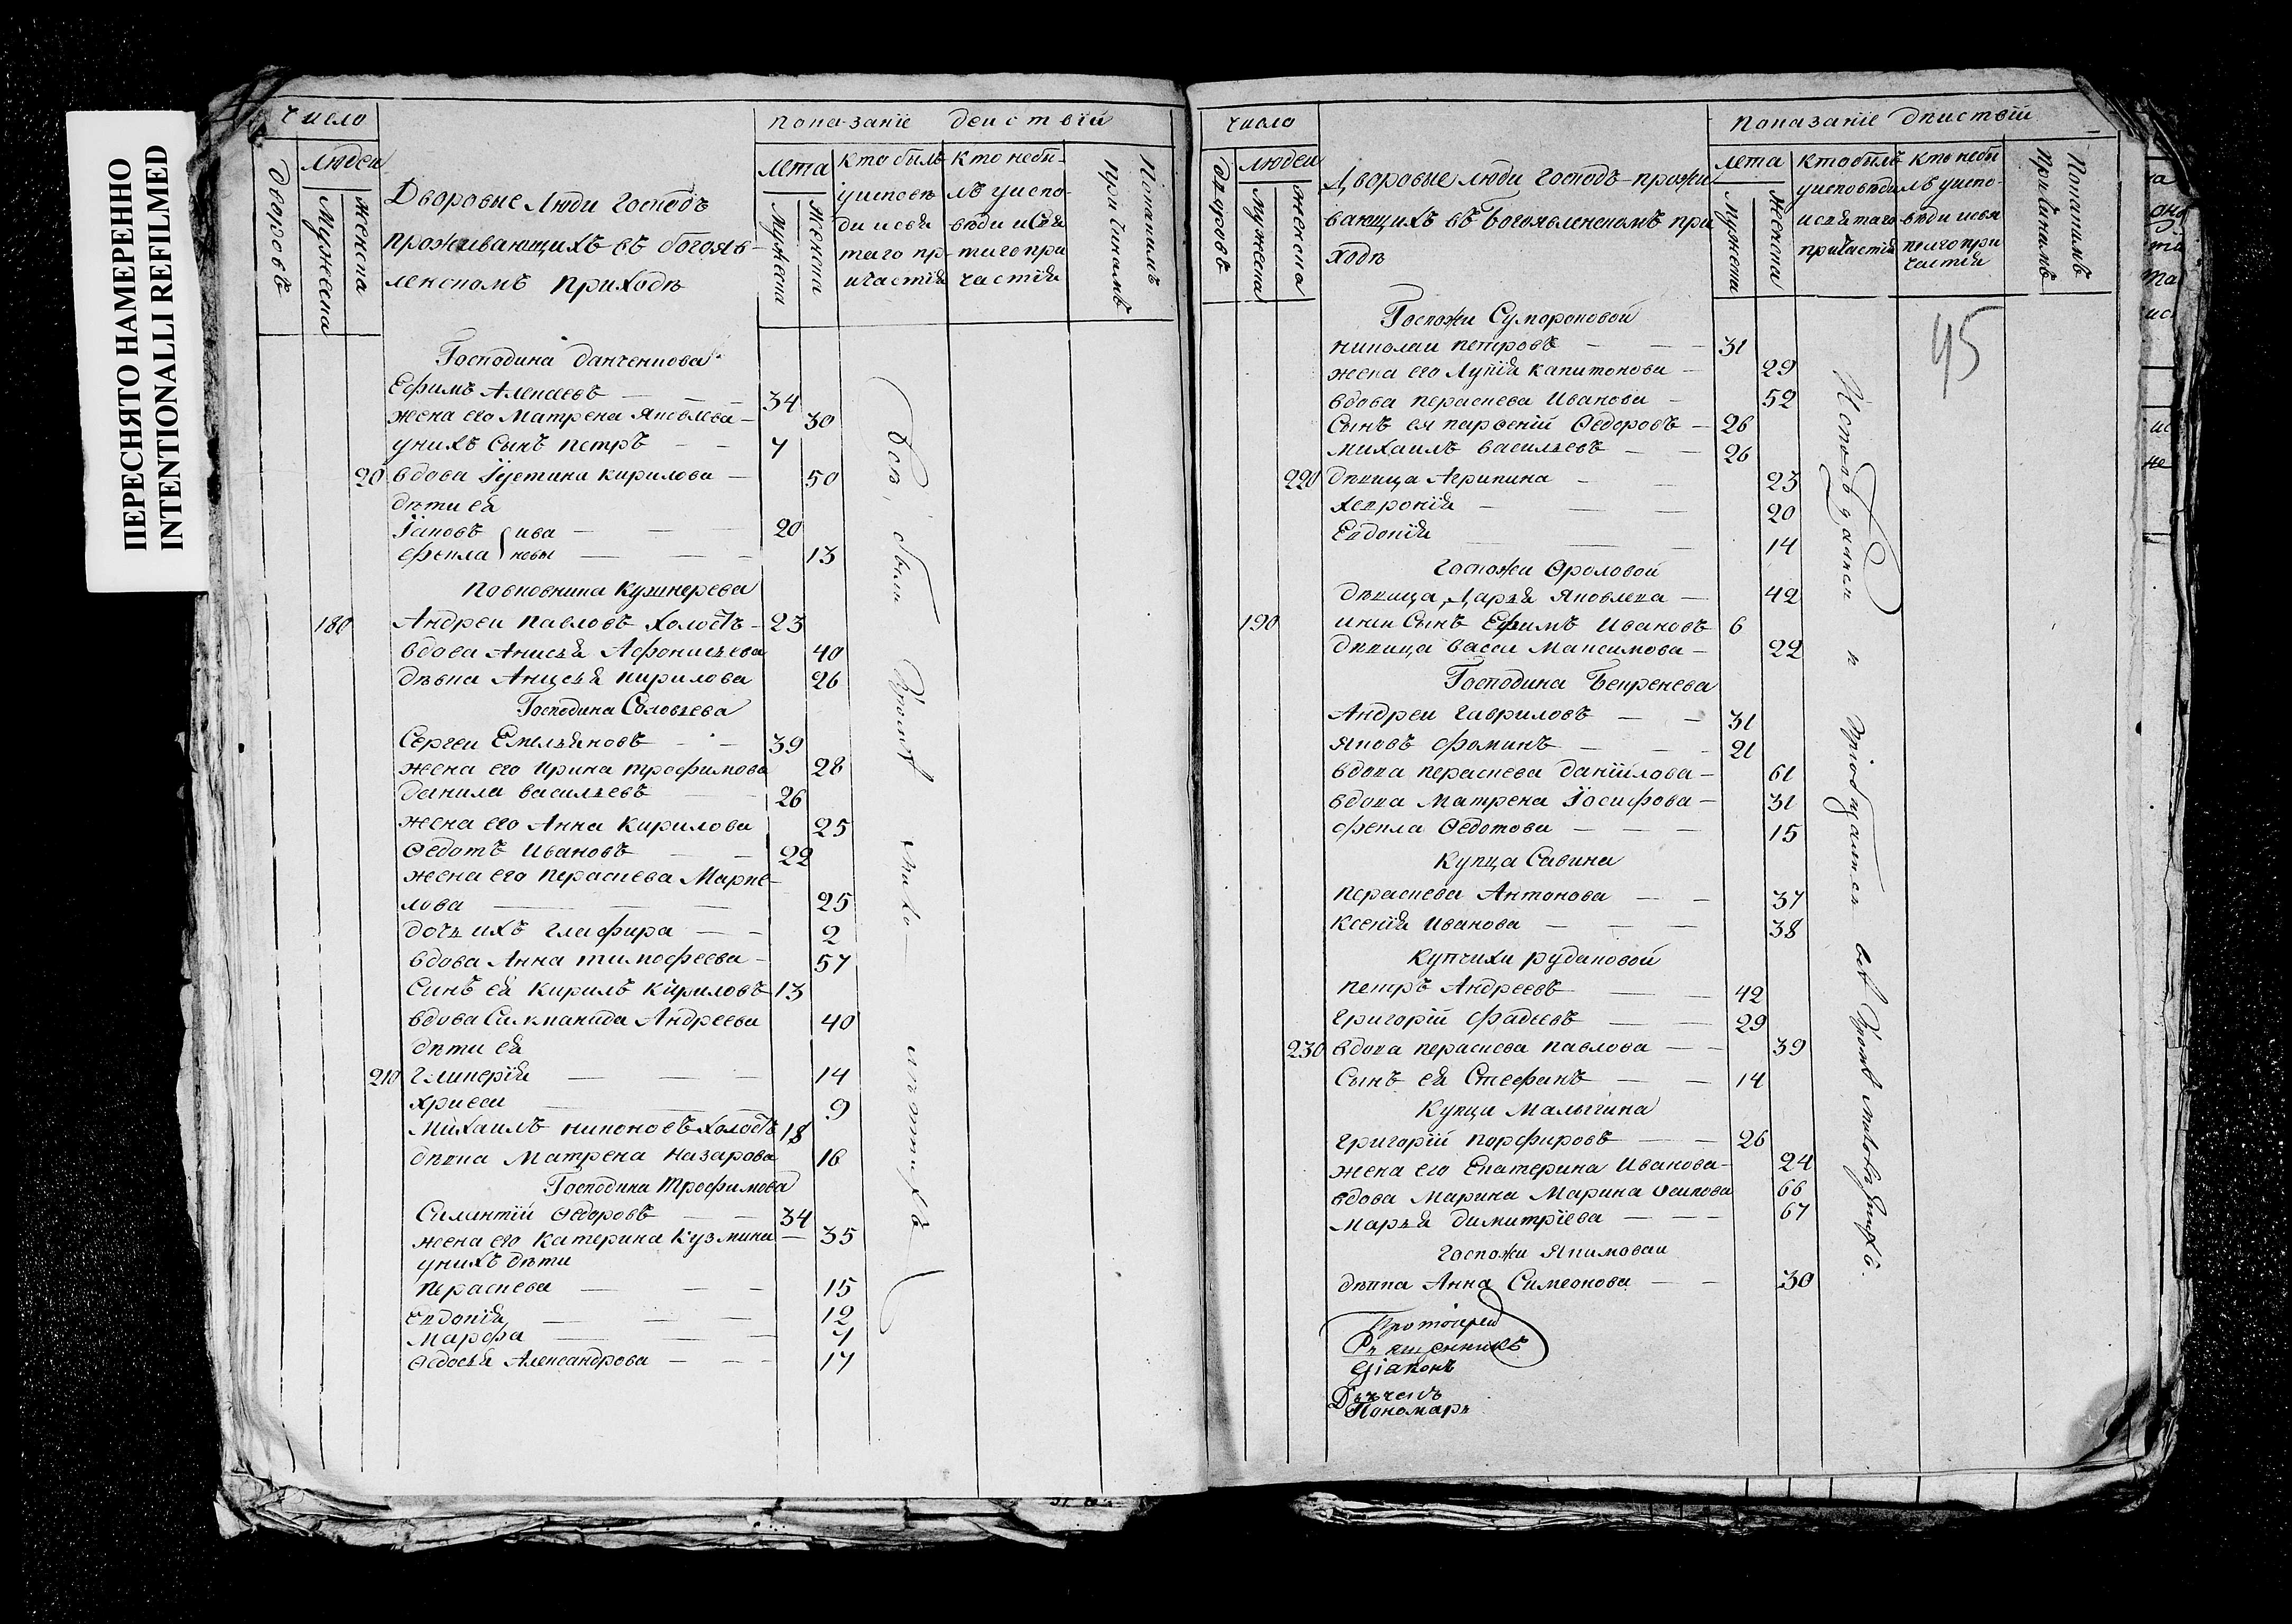 ПЕРЕСНЯТО НАМЕРЕННО
INTENTIONALLI REFILMED
число
показанiе деиствiй
дворовъ
людеи
мужеска
женска
Дворовые люди господъ
проживающихъ въ богояв-
ленскомъ приходѣ
лета
мужеска
женска
кто былъ
у исповѣ
ди и свя
таго пр-
ичастiя
кто небы-
лъ уиспо-
вѣди исвя
таго при
частiя
Покакимъ
причинамъ
Господина данченкова
Ефимъ Алексеевъ 34
жена его Матрена Яковлева 30
унихъ сынъ петръ 7
20 вдова Iустина кирилова 50
дѣти ея
Iаковъ ива 20
фекла новы 13
полковника Кушнерева
180 Андреи павловъ холостъ 23
вдова Анисья Афонисьева 40
дѣвка Анисья кирилова 26
Господина Соловьева
Сергеи Емельяновъ 39
жена его Ирина трофимова 28
данила васильевъ 26
жена его Анна кирилова 25
Ѳедотъ Ивановъ 22
жена его параскева Марке-
лова 25
дочь ихъ глафира 2
вдова Анна тимофеева 57
Синъ ея кирилъ кириловъ 13
вдова Андреева 40
дѣти ея
210 гликерiя 14
хриси 9
Михаилъ никоновъ холостъ 18
дѣвка Матрена назарова 16
Господина Трофимова
Силантiй Ѳедоровъ 34
жена его катерина кузмина 35
унихъ дѣти
параскева 15
Евдокiя 12
марфа 7
Ѳедосья Александрова 17
всѣ были
число
показанiе дѣиствiй
дворовъ
людеи
мужеска
женска
Дворовые люди господъ прожи
вающихъ въ Богоявленскомъ при
ходѣ
лета
мужеска
женска
ктобылъ
уисповѣди
исвятаго
причастiя
кто небы
лъ уиспо-
вѣди исвя
таго при
частiя
Покакимъ
причинамъ
45
Госпожи Сумороковой
николаи петровъ 31
жена его Лукiя капитонова 29
вдова параскева Иванова 52
Сынъ ея парѳенiй Ѳедоровъ 26
михаилъ васильевъ 26
220 дѣвица Агрипина 23
хеврониiя 20
Евдокiя 14
госпожи Ѳроловой
дѣвица Дарья Яковлева 42
190 унеи Сынъ Ефимъ Ивановъ 6
дѣвица васса Максимова 22
Господина Бекренева
Андреи гавриловъ 31
Яковъ фоминъ 21
вдова параскева данiилова 61
вдова Матрена Iосифова 31
фекла Ѳедотова 15
купца Савина
параскева Антонова 37
ксенiя Иванова 38
купчихи рудаковой
петръ Андреевъ 42
григорiй фадеевъ 29
230 вдова параскева павлова 39
Сынъ ея Стефанъ 14
Купца Малыгина
григорiй порфировъ 26
жена его Екатерина Иванова 24
вдова Марина Марина Осипова 66
марья димитрiева 67
госпожи Якимоваи
дѣвка Анна Симеонова 30
Исповѣдались и прiобщались всѣ кромѣ
Протоiерей
Священникъ
Дiаконъ
Дьячекъ
Пономарь